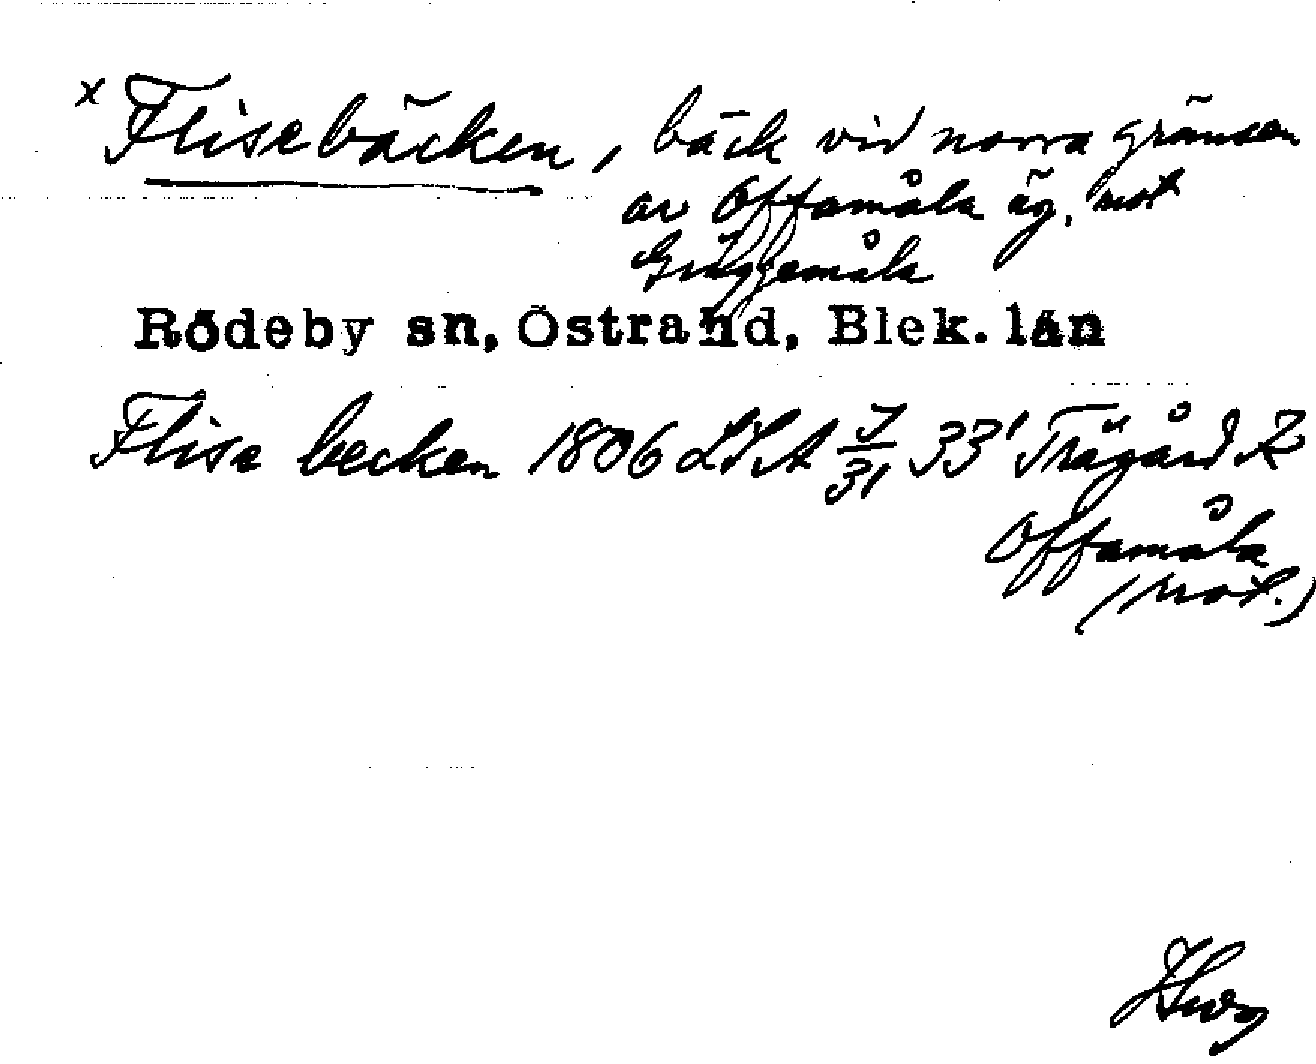 x Flisebäcken, bäck vid norra gränsen
av Offamåla äg. mot
Gräggemåla
Rödeby sn, Östra hd, Blek. län
Flise becken 1806 LSA 33' Trägård R
Offamåla
(mot.)